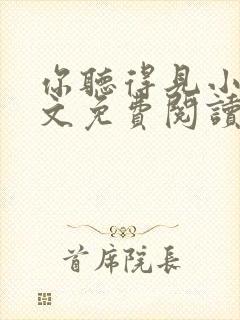 你聽得見小
文免費閱讀
首席院長